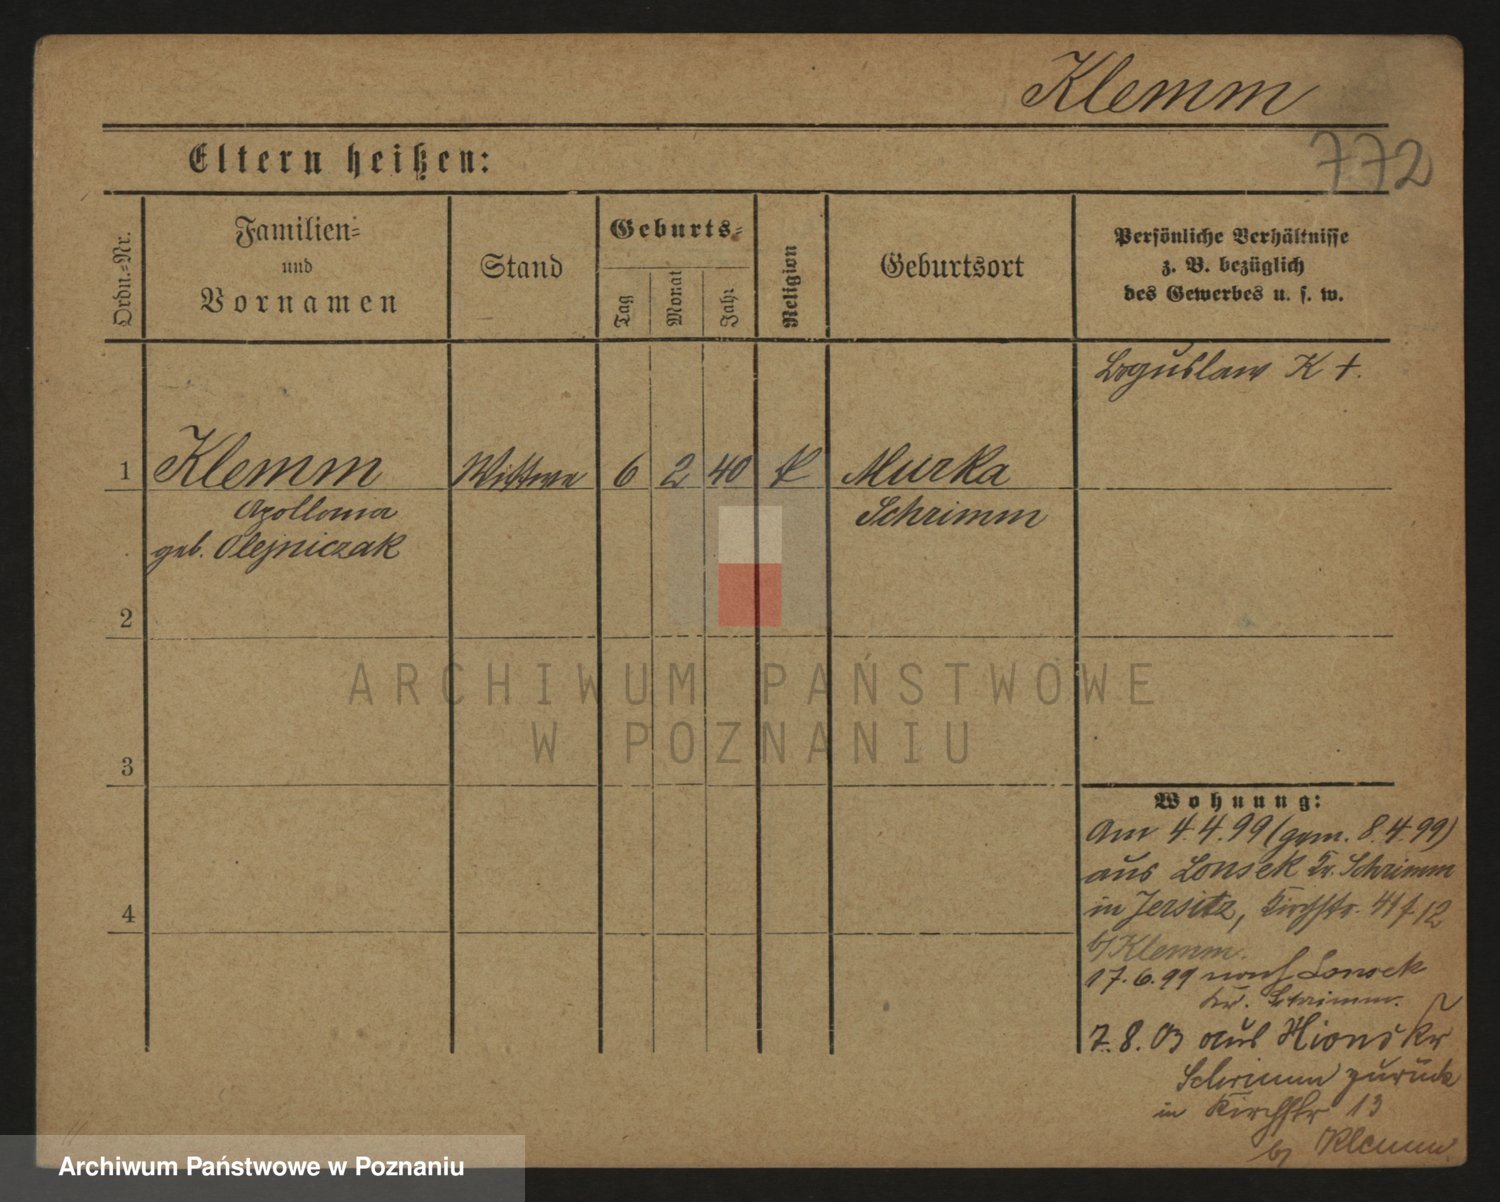 Klemm
772
Eltern heißen:
Ordn.-Nr.
Familien-
und
Vornamen
Stand
Geburts-
Tag
Monat
Jahr
Religion
Geburtsort
Persönliche Verhältnisse
z. B. bezüglich
des Gewerbes u. s. w.
Boguslaw K †.
1 Klemm Wittwe 6 2 40 k Murka
Apollonia Schrimm
geb. Olejniczak
2
3
4
Wohnung:
Am 4.4.99 (gem. 8.4.99)
aus Lonsek Kr. Schrimm
in Jersitz, Kirchstr. 12
b/Klemm.
17.6.99 nach Lonsek
Kr. Schrimm.
7.8.03 aus Kr
Schrimm zurück
in Kirchstr 13
b/ Klemm.
ARCHIWUM PAŃSTWOWE
W POZNANIU
Archiwum Państwowe w Poznaniu